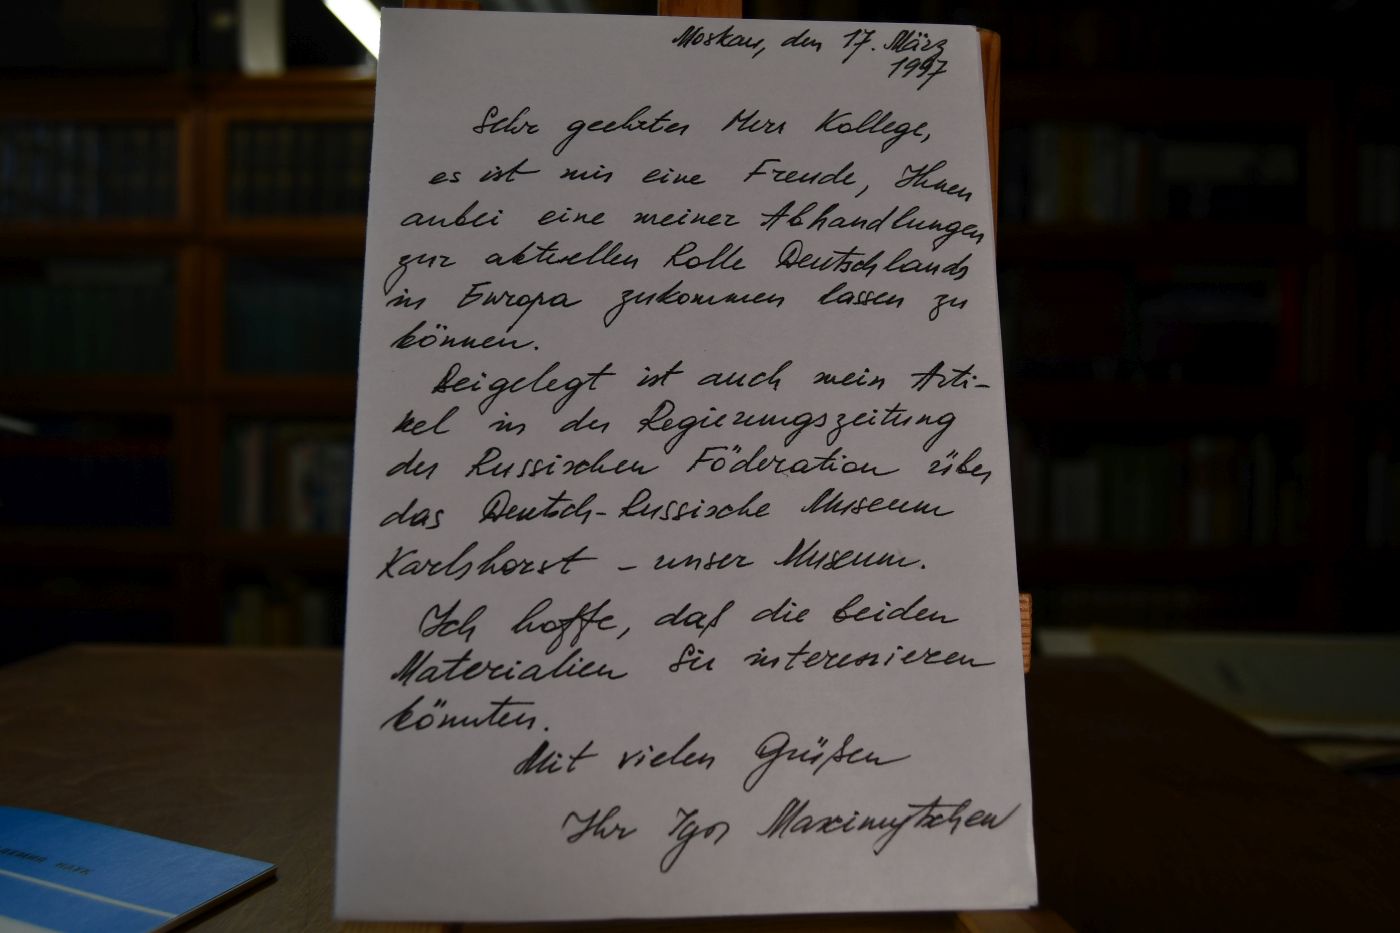 Moskau, den 17. März
1997
Sehr geehrter Herr Kollege,
es ist mir eine Freude, Ihnen
anbei eine meiner Abhandlungen
zur aktuellen Rolle Deutschlands
in Europa zukommen lassen zu
können.
Beigelegt ist auch mein Arti-
kel in der Regierungszeitung
der Russischen Föderation über
das Deutsch-Russische Museum
Karlshorst – unser Museum.
Ich hoffe, daß die beiden
Materialien Sie interessieren
könnten.
Mit vielen Grüßen
Ihr Igor Maximytschew